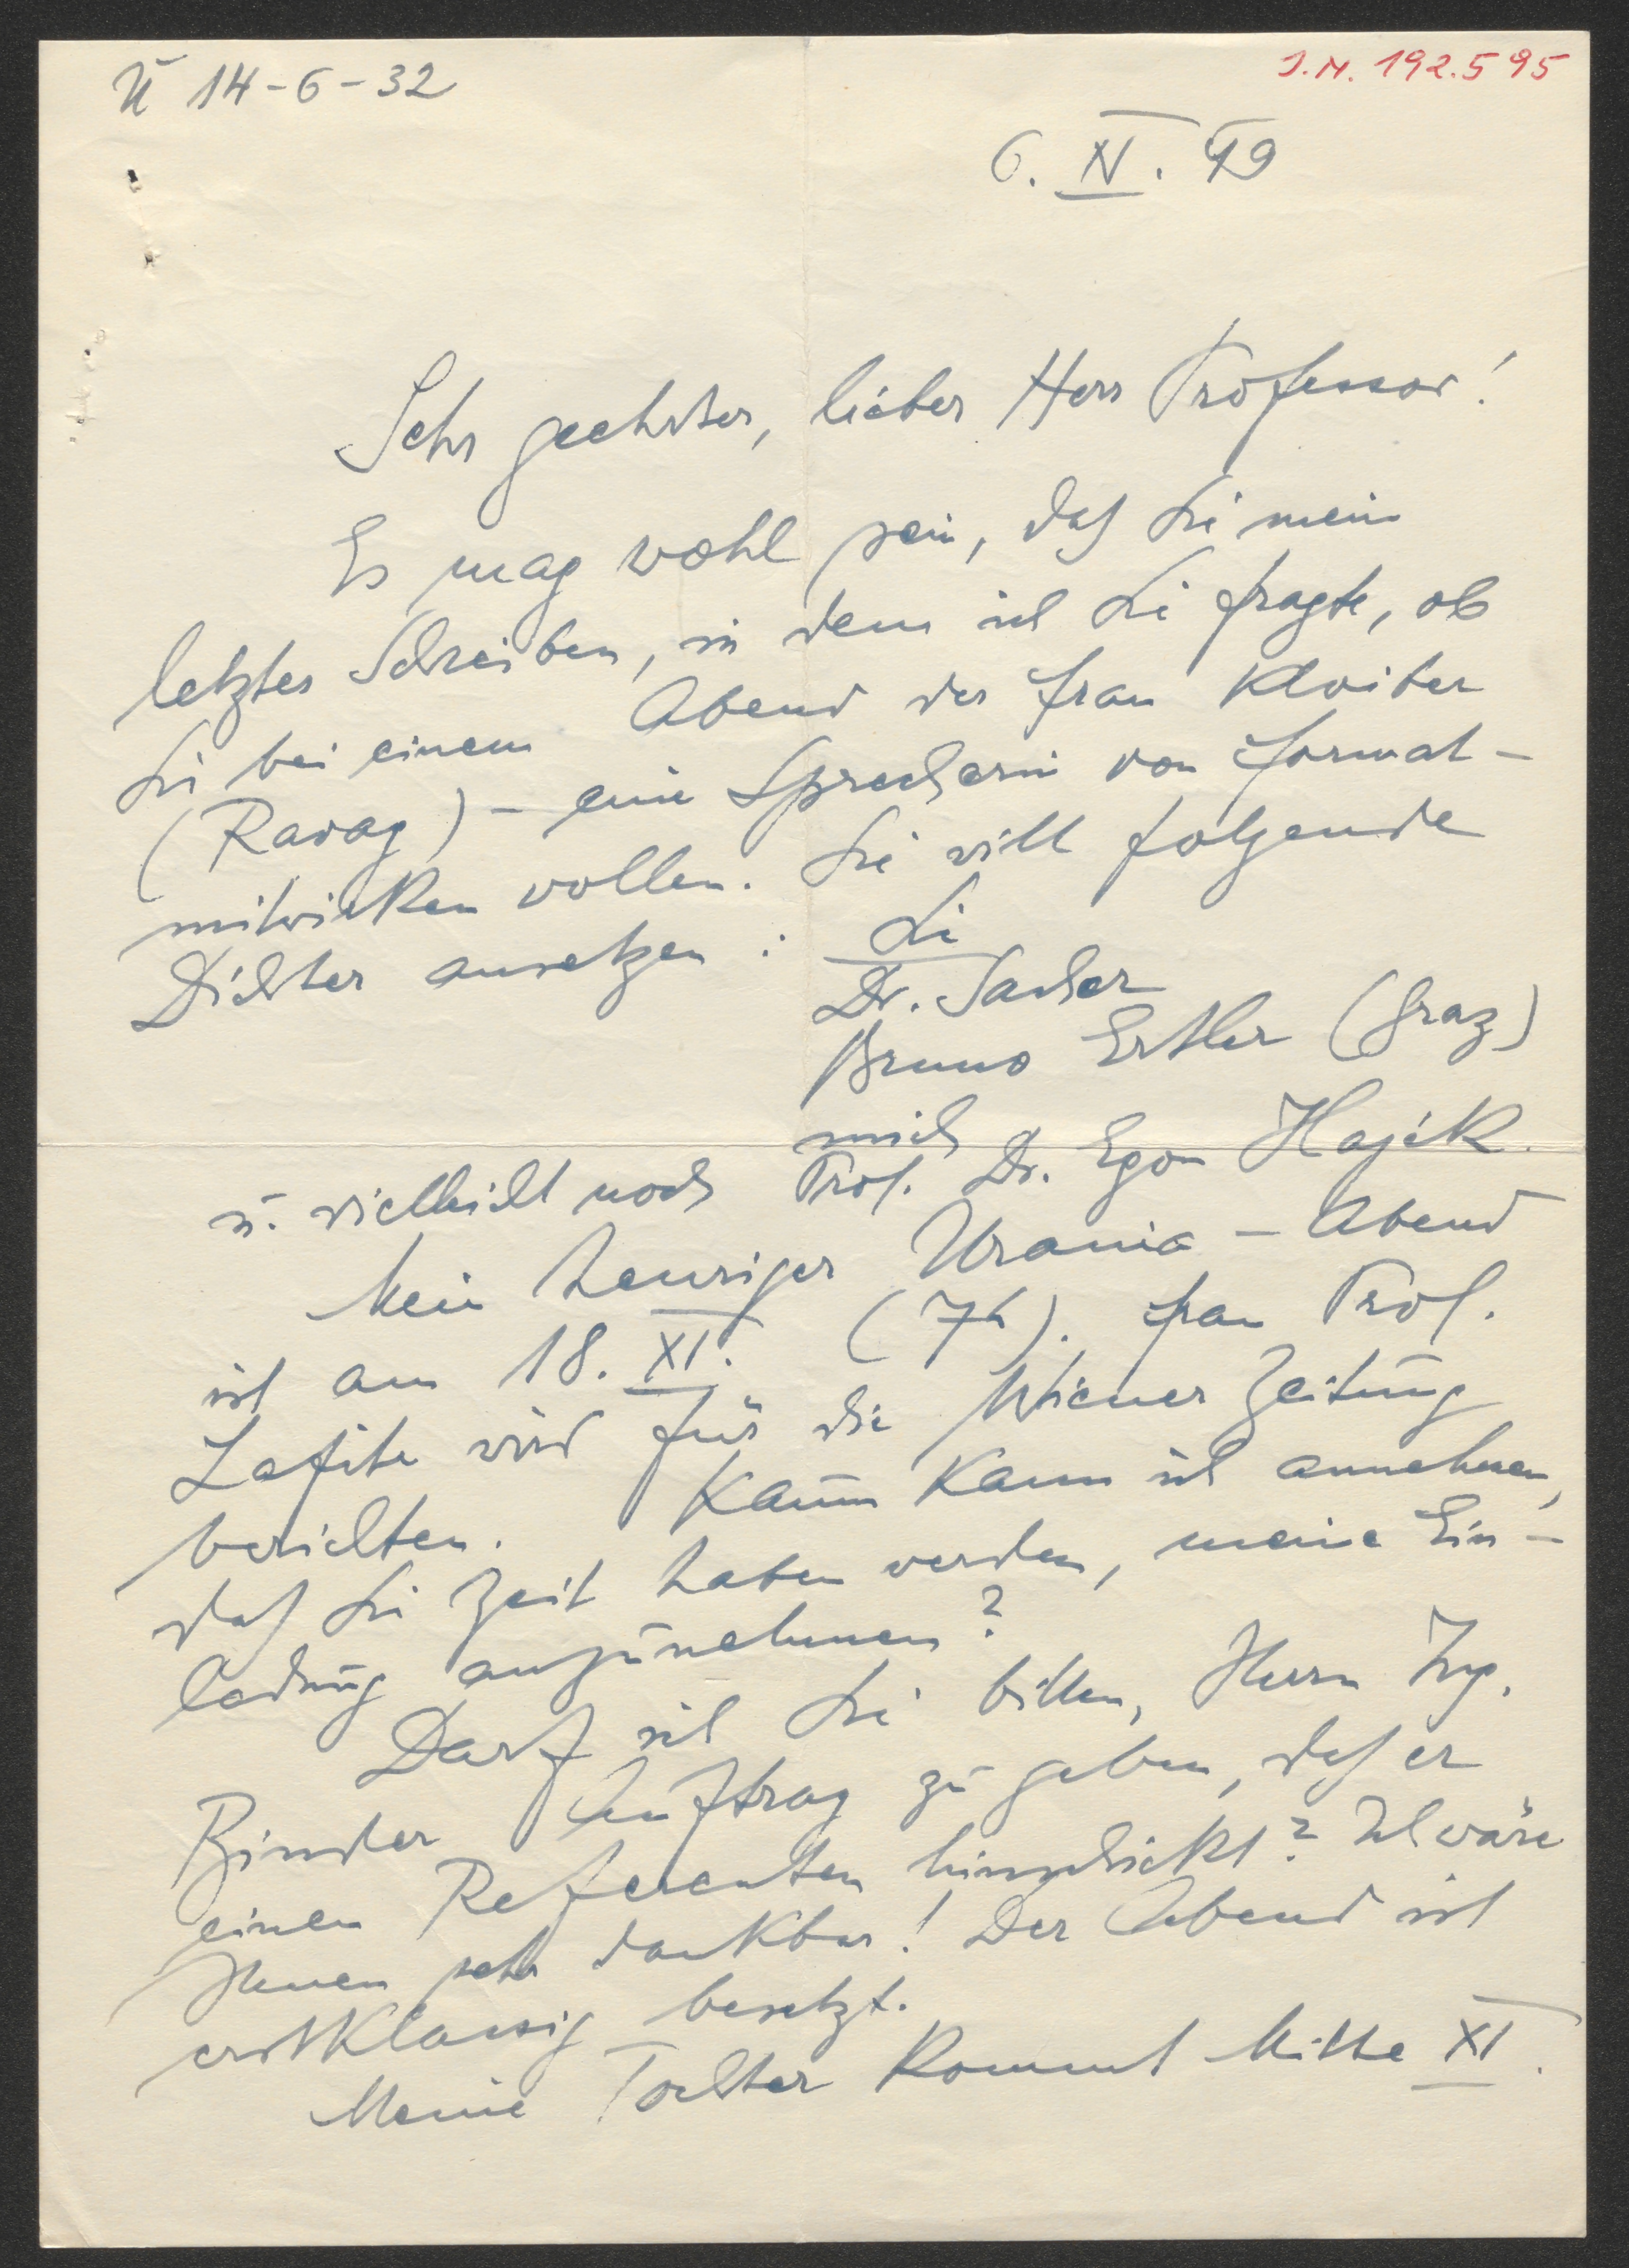 Ü 14-6-32
J.N. 192.595
6. XI. 49
Sehr geehrter, lieber Herr Professor!
Es mag wohl sein, daß Sie mein
letztes Schreiben, in dem ich Sie fragte, ob
Sie bei einem Abend der Frau Kloiber
(Ravag) – eine Sprecherin von Format –
mitwirken wollen. Sie will folgende
Dichter ansetzen: Sie
Dr. Sacher
Bruno Ertler (Graz)
mich
u. vielleicht noch Prof. Dr. Egon Hajek.
Mein heuriger Urania – Abend
ist am 18. XI. (7h). Frau Prof.
Lafite wird für die Wiener Zeitung
berichten. Kaum kann ich annehmen,
daß Sie Zeit haben werden, meine Ein-
ladung anzunehmen?
Darf ich Sie bitten, Herrn Ing.
Binder Auftrag zu geben, daß er
einen Referenten hinschickt? Ich wäre
Ihnen sehr dankbar! Der Abend ist
erstklassig besetzt.
Meine Tochter kommt Mitte XI.